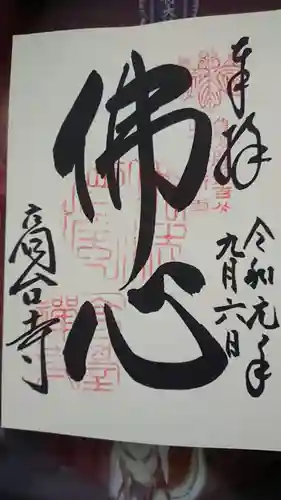 奉拝
令和元年
九月六日
佛心
高台寺